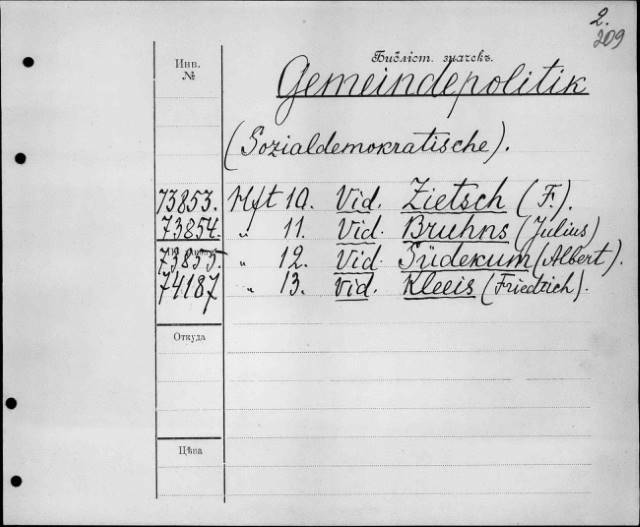 2.
209
Инв.
№
Библіот. значекъ.
Gemeindepolitik
(Sozialdemokratische).
73853. Hft 10. Vid. Zietsch (F.).
73854. " 11. Vid. Bruhns (Julius)
73855. " 12. Vid. Südekum (Albert).
74187 " 13. Vid. Kleeis (Friedrich).
Откуда
Цѣна